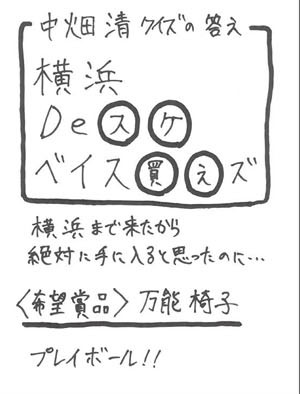 中畑清クイズの答え
横浜
Deスケ
ベイス買えズ
横浜まで来たから
絶対に手に入ると思ったのに…
〈希望賞品〉万能椅子
プレイボール!!